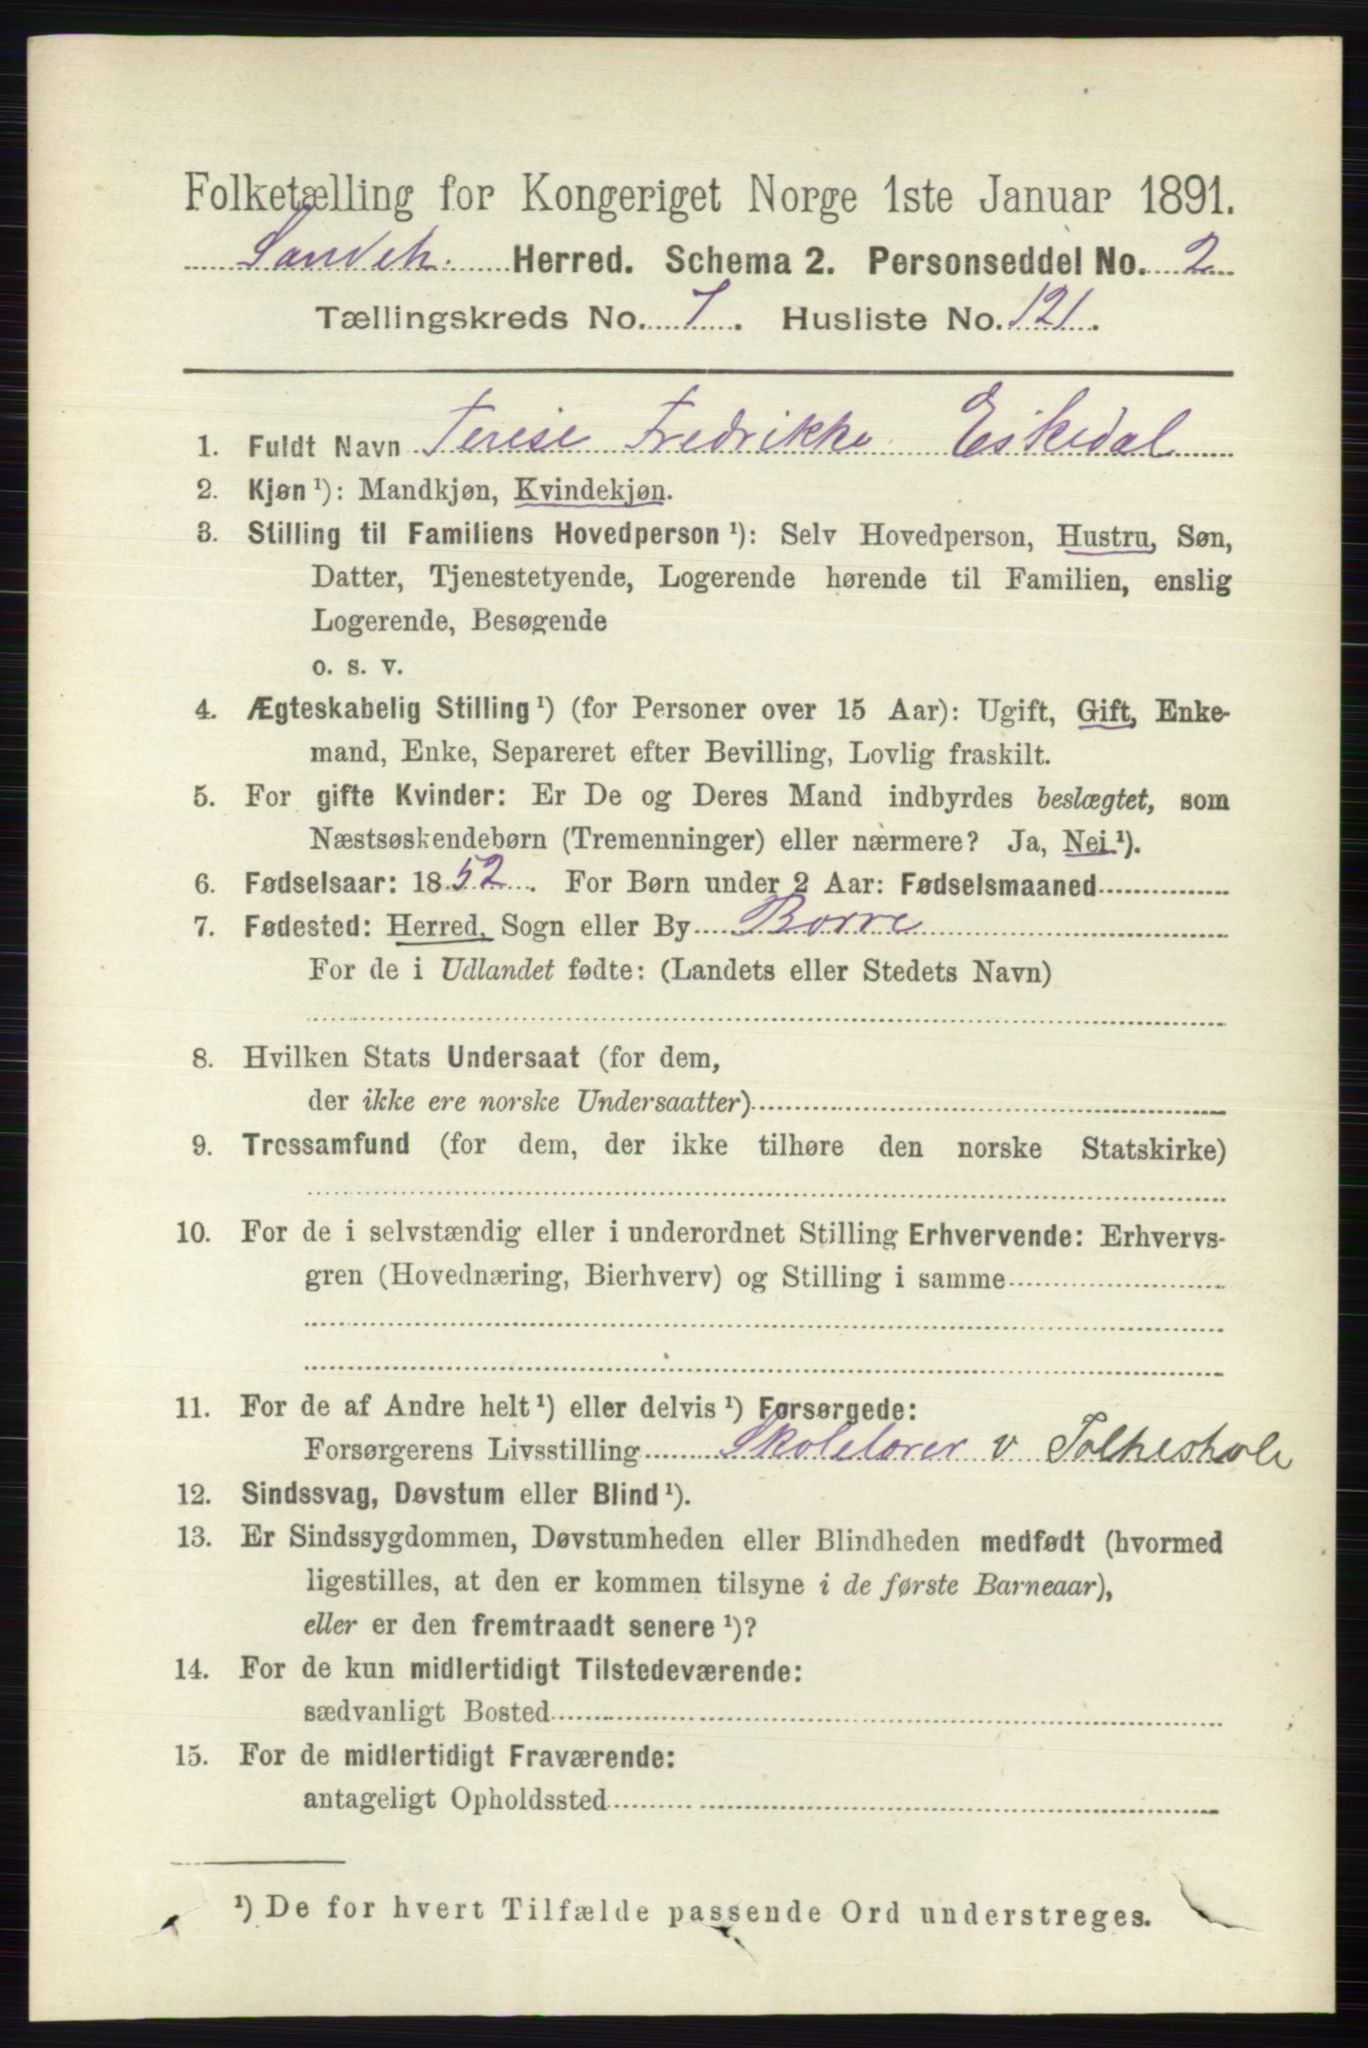 Folketælling for Kongeriget Norge 1ste Januar 1891.
Sandeh. Herred. Schema 2. Personseddel No. 2
Tællingskreds No. 7. Husliste No. 121.
1. Fuldt Navn Terese Fredrikke Eskedal
2. Kjøn ¹): Mandkjøn, Kvindekjøn.
3. Stilling til Familiens Hovedperson ¹): Selv Hovedperson, Hustru, Søn,
Datter, Tjenestetyende, Logerende hørende til Familien, enslig
Logerende, Besøgende
o. s. v.
4. Ægteskabelig Stilling ¹) (for Personer over 15 Aar): Ugift, Gift, Enke-
mand, Enke, Separeret efter Bevilling, Lovlig fraskilt.
5. For gifte Kvinder: Er De og Deres Mand indbyrdes beslægtet, som
Næstsøskendebørn (Tremenninger) eller nærmere? Ja, Nei ¹).
6. Fødselsaar: 1852. For Børn under 2 Aar: Fødselsmaaned
7. Fødested: Herred, Sogn eller By Borre
For de i Udlandet fødte: (Landets eller Stedets Navn)
8. Hvilken Stats Undersaat (for dem,
der ikke ere norske Undersaatter)
9. Trossamfund (for dem, der ikke tilhøre den norske Statskirke)
10. For de i selvstændig eller i underordnet Stilling Erhvervende: Erhvervs-
gren (Hovednæring, Bierhverv) og Stilling i samme
11. For de af Andre helt ¹) eller delvis ¹) Forsørgede:
Forsørgerens Livsstilling Skolelærer v Folkeskole
12. Sindssvag, Døvstum eller Blind ¹).
13. Er Sindssygdommen, Døvstumheden eller Blindheden medfødt (hvormed
ligestilles, at den er kommen tilsyne i de første Barneaar),
eller er den fremtraadt senere ¹)?
14. For de kun midlertidigt Tilstedeværende:
sædvanligt Bosted
15. For de midlertidigt Fraværende:
antageligt Opholdssted
¹) De for hvert Tilfælde passende Ord understreges.